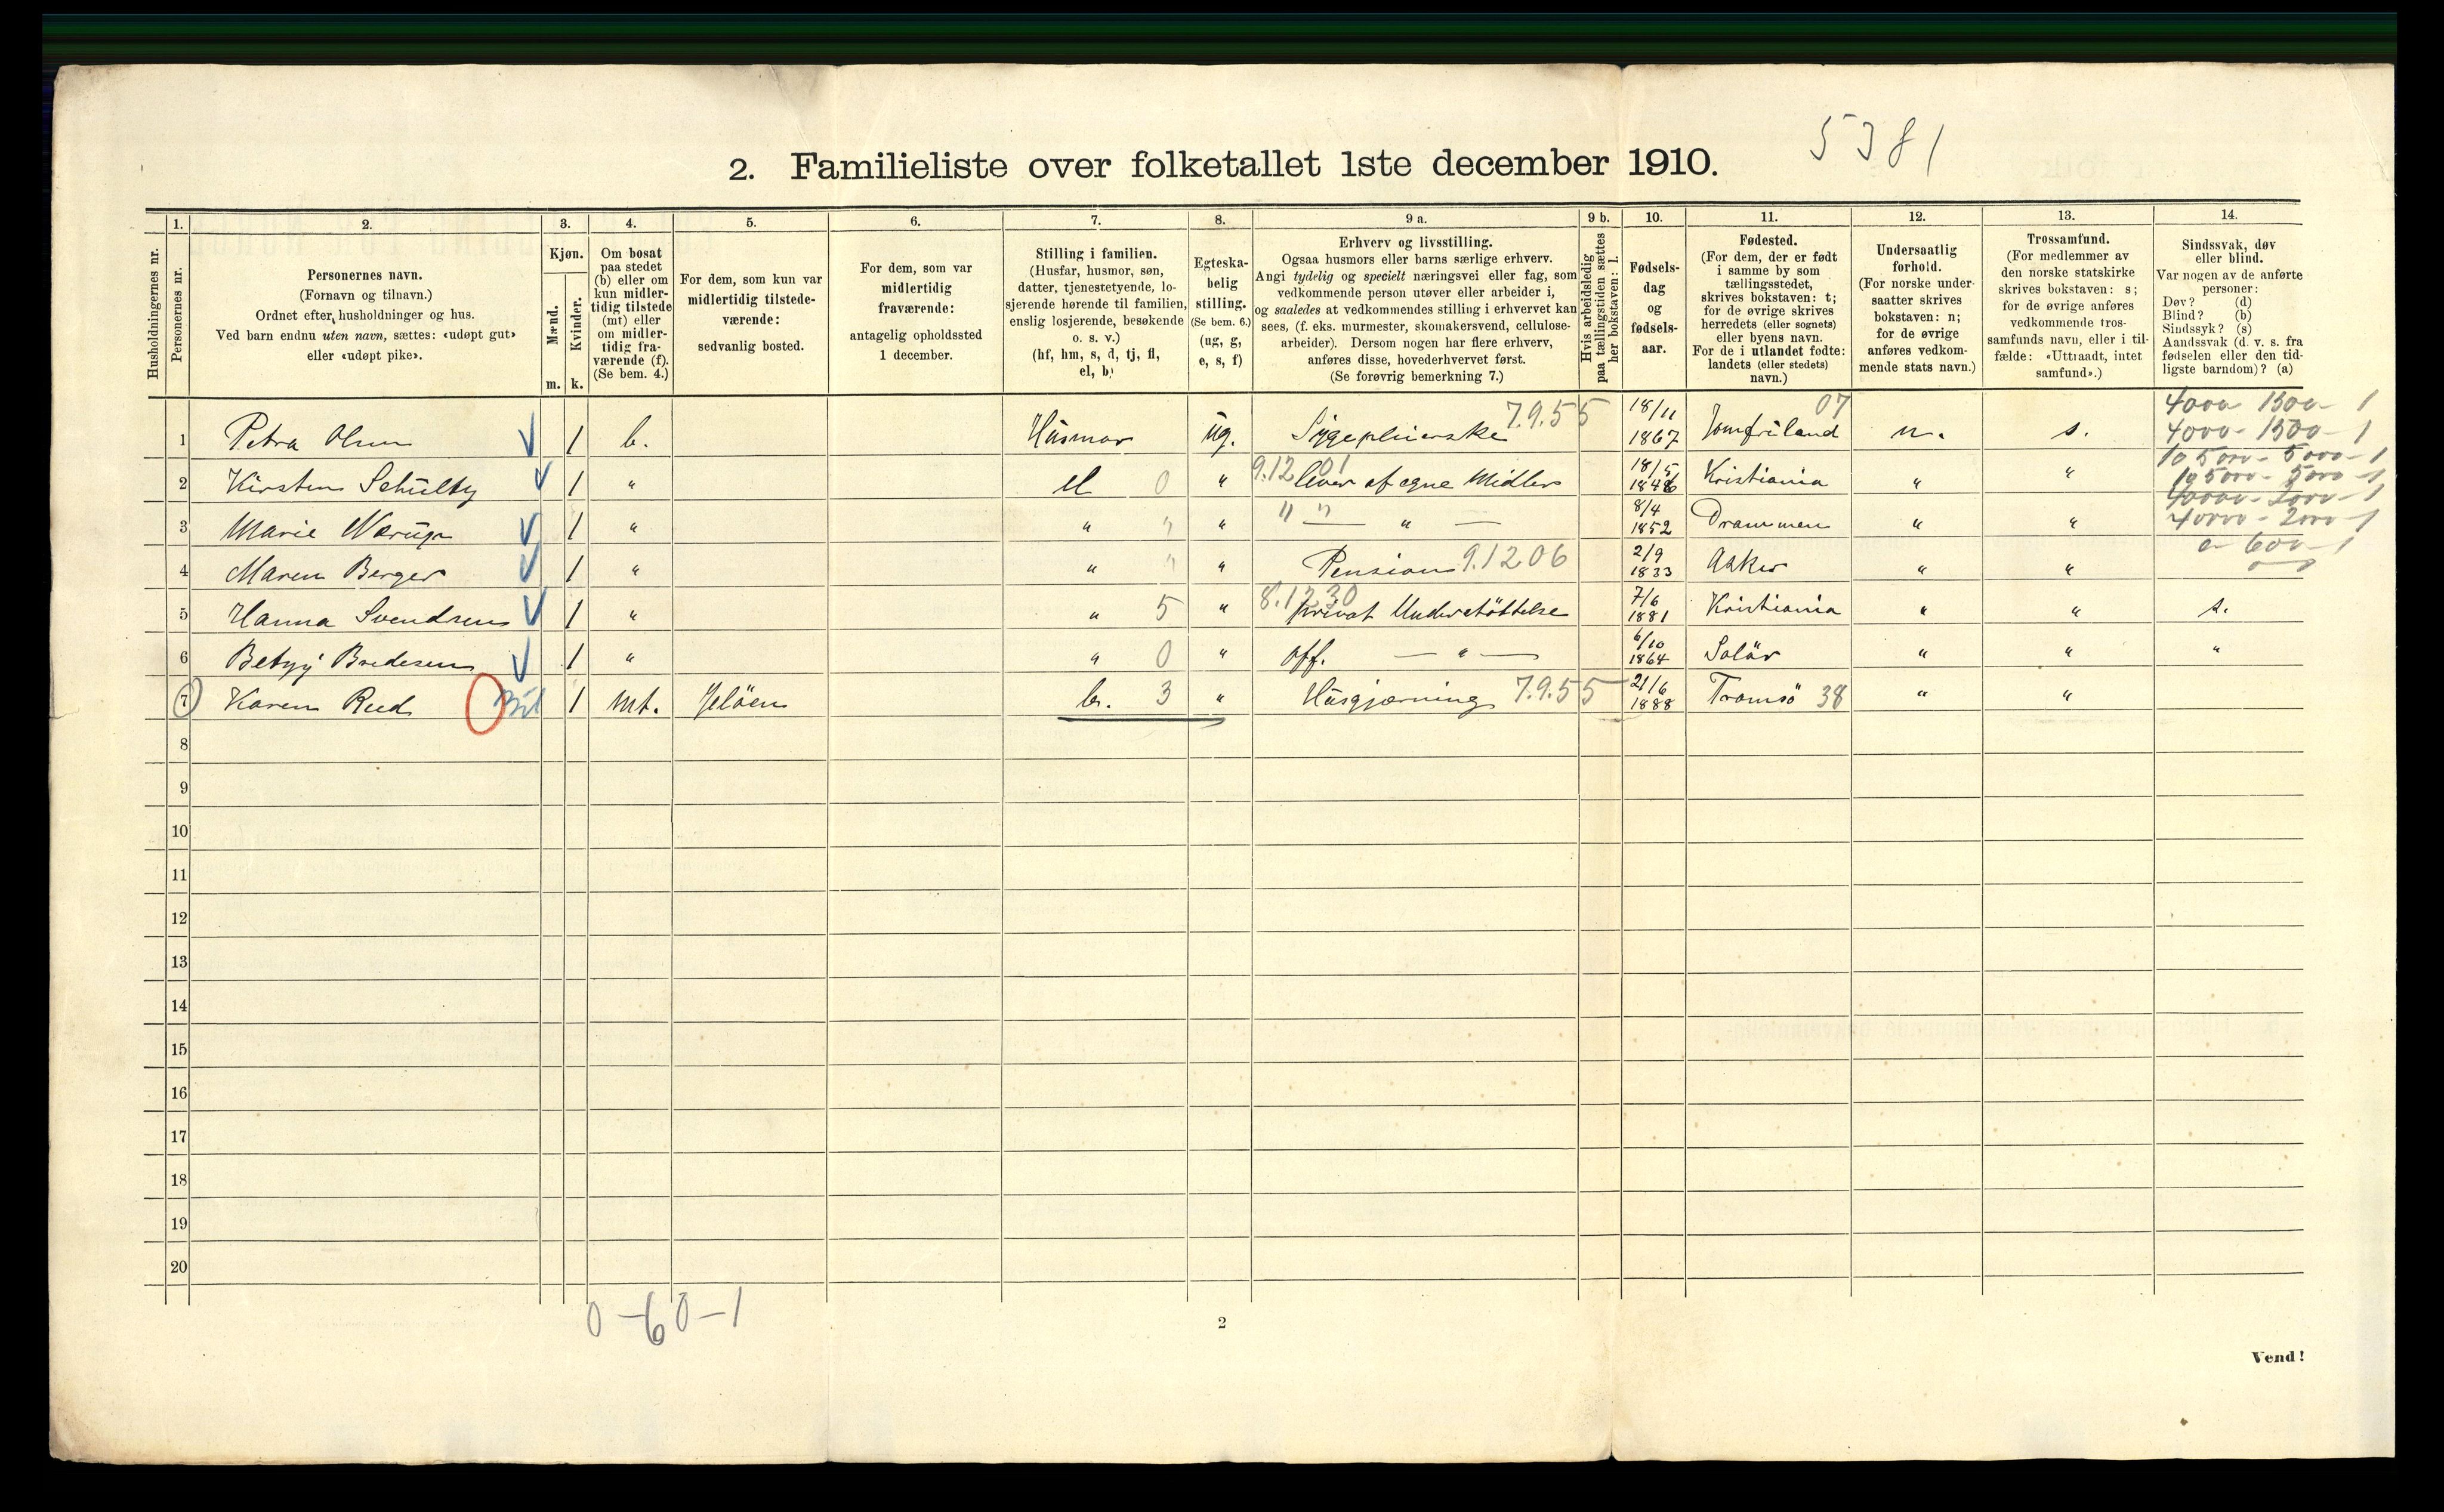 5381
2. Familieliste over folketallet 1ste december 1910.
Husholdningernes nr.
1. Personernes nr.
2. Personernes navn. (Fornavn og tilnavn.) Ordnet efter husholdninger og hus. Ved barn endnu uten navn, sættes: «udøpt gut» eller «udøpt pike».
3. Kjøn. Mænd. m. Kvinder. k.
4. Om bosat paa stedet (b) eller om kun midlertidig tilstede (mt) eller om midlertidig fraværende (f). (Se bem. 4.)
5. For dem, som kun var midlertidig tilstedeværende: sedvanlig bosted.
6. For dem, som var midlertidig fraværende: antagelig opholdssted 1 december.
7. Stilling i familien. (Husfar, husmor, søn, datter, tjenestetyende, losjerende hørende til familien, enslig losjerende, besøkende o. s. v.) (hf, hm, s, d, tj, fl, el, b)
8. Egteskabelig stilling. (Se bem. 6.) (ug, g, e, s, f)
9 a. Erhverv og livsstilling. Ogsaa husmors eller barns særlige erhverv. Angi tydelig og specielt næringsvei eller fag, som vedkommende person utøver eller arbeider i, og saaledes at vedkommendes stilling i erhvervet kan sees, (f. eks. murmester, skomakersvend, cellulosearbeider). Dersom nogen har flere erhverv, anføres disse, hovederhvervet først. (Se forøvrig bemerkning 7.)
9 b. Hvis arbeidsledig paa tællingstiden sættes her bokstaven: l.
10. Fødselsdag og fødselsaar.
11. Fødested. (For dem, der er født i samme by som tællingsstedet, skrives bokstaven: t; for de øvrige skrives herredets (eller sognets) eller byens navn. For de i utlandet fødte: landets (eller stedets) navn.)
12. Undersaatlig forhold. (For norske undersaatter skrives bokstaven: n; for de øvrige anføres vedkommende stats navn.)
13. Trossamfund. (For medlemmer av den norske statskirke skrives bokstaven: s; for de øvrige anføres vedkommende trossamfunds navn, eller i tilfælde: «Uttraadt, intet samfund».)
14. Sindssvak, døv eller blind. Var nogen av de anførte personer: Døv? (d) Blind? (b) Sindssyk? (s) Aandssvak (d. v. s. fra fødselen eller den tidligste barndom)? (a)
1 Petra Olsen 1 b. Husmor ug. Sygepleierske 7.9.55 18/11 1867 Jomfruland 07 n. s. 4000 - 1300 - 1
2 Kirsten Schultz 1 " el 0 " 9.12 01 lever af egne Midler 18/5 1846 Kristiania " "
3 Marie Wærup 1 " " " " " " " 8/4 1852 Drammen " "
4 Maren Berger 1 " " " " Pension 9.12 06 2/9 1833 Aker " "
5 Hanna Svendsen 1 " " 5 " 8.12 30 privat Understöttelse 7/6 1881 Kristiania " " s.
6 Betzy Bredesen 1 " " 0 " off. — " — 6/10 1864 Solör " " "
7 Karen Rud 1 mt. Jelöen b. 3 " Husgjærning 7.9.55 21/6 1888 Tromsö 38 " "
8
9
10
11
12
13
14
15
16
17
18
19
20
0 - 6 0 - 1
2
Vend!